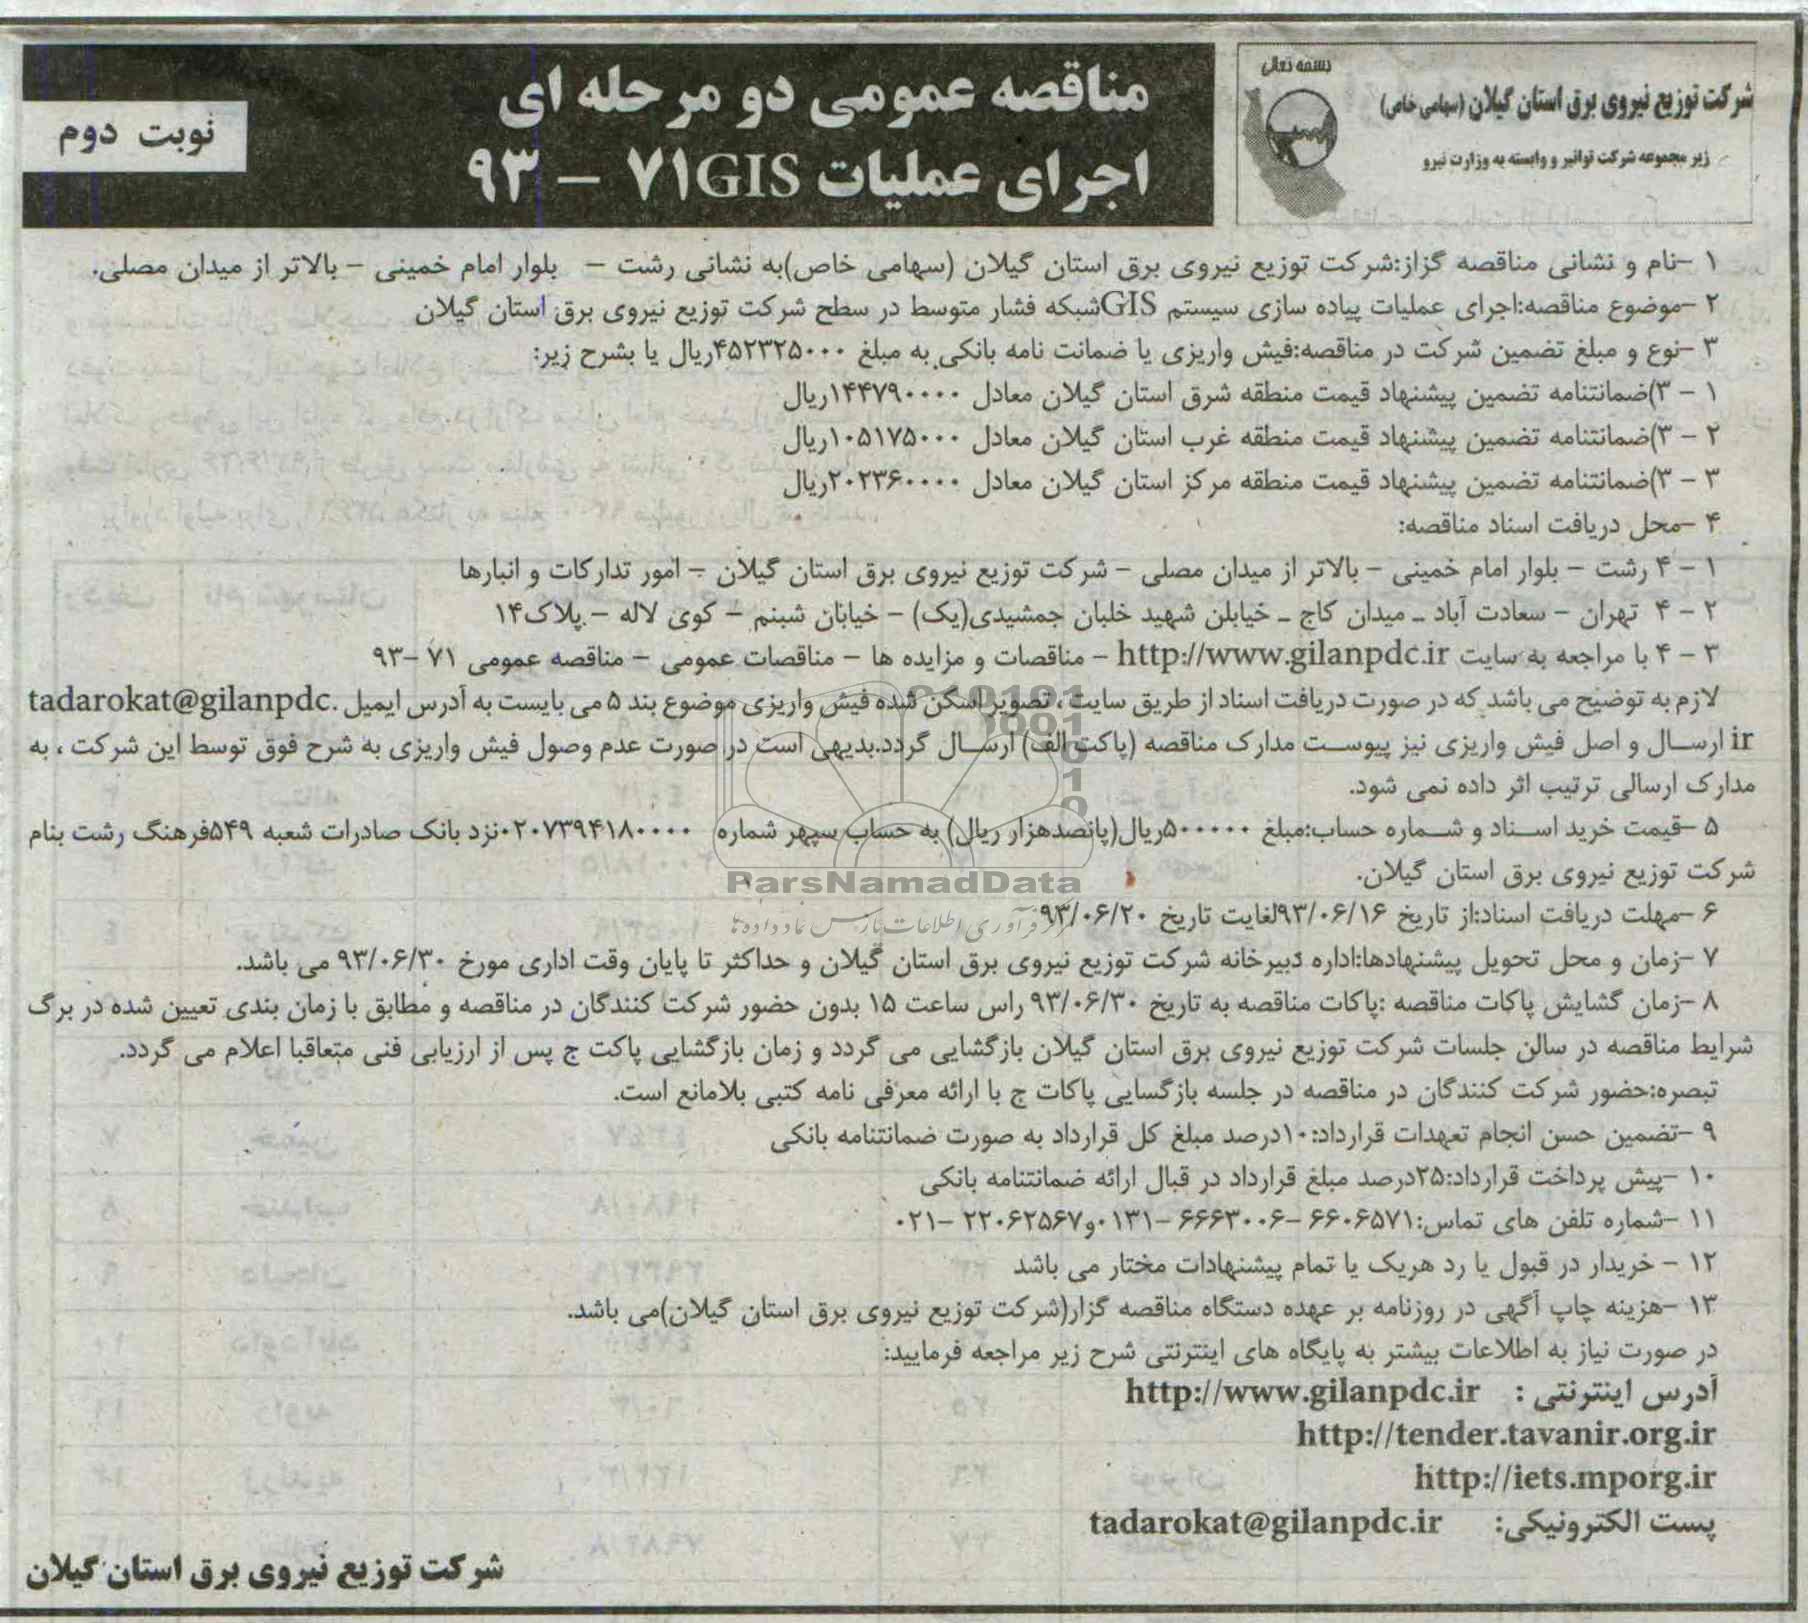 بسمه تعالی
شرکت توزیع نیروی برق استان گیلان (سهامی خاص)
زیر مجموعه شرکت توانیر و وابسته به وزارت نیرو
مناقصه عمومی دو مرحله ای
اجرای عملیات GIS۷۱ – ۹۳
نوبت دوم
۱ –نام و نشانی مناقصه گزار:شرکت توزیع نیروی برق استان گیلان (سهامی خاص)به نشانی رشت – بلوار امام خمینی – بالاتر از میدان مصلی.
۲ –موضوع مناقصه:اجرای عملیات پیاده سازی سیستم GISشبکه فشار متوسط در سطح شرکت توزیع نیروی برق استان گیلان
۳ –نوع و مبلغ تضمین شرکت در مناقصه:فیش واریزی یا ضمانت نامه بانکی به مبلغ ۴۵۲۳۲۵۰۰۰ریال یا بشرح زیر:
۱ – ۳)ضمانتنامه تضمین پیشنهاد قیمت منطقه شرق استان گیلان معادل ۱۴۴۷۹۰۰۰۰ریال
۲ – ۳)ضمانتنامه تضمین پیشنهاد قیمت منطقه غرب استان گیلان معادل ۱۰۵۱۷۵۰۰۰ریال
۳ – ۳)ضمانتنامه تضمین پیشنهاد قیمت منطقه مرکز استان گیلان معادل ۲۰۲۳۶۰۰۰۰ریال
۴ –محل دریافت اسناد مناقصه:
۱ – ۴ رشت – بلوار امام خمینی – بالاتر از میدان مصلی – شرکت توزیع نیروی برق استان گیلان – امور تدارکات و انبارها
۲ – ۴ تهران – سعادت آباد – میدان کاج – خیابلن شهید خلبان جمشیدی(یک) – خیابان شبنم – کوی لاله – پلاک۱۴
۳ – ۴ با مراجعه به سایت http://www.gilanpdc.ir – مناقصات و مزایده ها – مناقصات عمومی – مناقصه عمومی ۷۱ –۹۳
لازم به توضیح می باشد که در صورت دریافت اسناد از طریق سایت ، تصویر اسکن شده فیش واریزی موضوع بند ۵ می بایست به آدرس ایمیل tadarokat@gilanpdc.
ir ارسال و اصل فیش واریزی نیز پیوست مدارک مناقصه (پاکت الف) ارسال گردد.بدیهی است در صورت عدم وصول فیش واریزی به شرح فوق توسط این شرکت ، به
مدارک ارسالی ترتیب اثر داده نمی شود.
۵ –قیمت خرید اسناد و شماره حساب:مبلغ ۵۰۰۰۰۰ریال(پانصدهزار ریال) به حساب سپهر شماره ۰۲۰۷۳۹۴۱۸۰۰۰۰نزد بانک صادرات شعبه ۵۴۹فرهنگ رشت بنام
شرکت توزیع نیروی برق استان گیلان.
ParsNamadData
مرکز فرآوری اطلاعات پارس نماد داده ها
۶ –مهلت دریافت اسناد:از تاریخ ۹۳/۰۶/۱۶لغایت تاریخ ۹۳/۰۶/۲۰
۷ –زمان و محل تحویل پیشنهادها:اداره دبیرخانه شرکت توزیع نیروی برق استان گیلان و حداکثر تا پایان وقت اداری مورخ ۹۳/۰۶/۳۰ می باشد.
۸ –زمان گشایش پاکات مناقصه :پاکات مناقصه به تاریخ ۹۳/۰۶/۳۰ راس ساعت ۱۵ بدون حضور شرکت کنندگان در مناقصه و مطابق با زمان بندی تعیین شده در برگ
شرایط مناقصه در سالن جلسات شرکت توزیع نیروی برق استان گیلان بازگشایی می گردد و زمان بازگشایی پاکت ج پس از ارزیابی فنی متعاقبا اعلام می گردد.
تبصره:حضور شرکت کنندگان در مناقصه در جلسه بازگسایی پاکات ج با ارائه معرفی نامه کتبی بلامانع است.
۹ –تضمین حسن انجام تعهدات قرارداد:۱۰درصد مبلغ کل قرارداد به صورت ضمانتنامه بانکی
۱۰ –پیش پرداخت قرارداد:۲۵درصد مبلغ قرارداد در قبال ارائه ضمانتنامه بانکی
۱۱ –شماره تلفن های تماس:۶۶۰۶۵۷۱ –۶۶۶۳۰۰۶ –۰۱۳۱و۲۲۰۶۲۵۶۷ –۰۲۱
۱۲ – خریدار در قبول یا رد هریک یا تمام پیشنهادات مختار می باشد
۱۳ –هزینه چاپ آگهی در روزنامه بر عهده دستگاه مناقصه گزار(شرکت توزیع نیروی برق استان گیلان)می باشد.
در صورت نیاز به اطلاعات بیشتر به پایگاه های اینترنتی شرح زیر مراجعه فرمایید:
آدرس اینترنتی : http://www.gilanpdc.ir
http://tender.tavanir.org.ir
http://iets.mporg.ir
پست الکترونیکی: tadarokat@gilanpdc.ir
شرکت توزیع نیروی برق استان گیلان